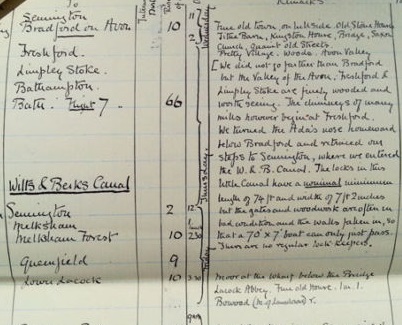 To
Remarks
Semington
Bradford on Avon 10
Freshford.
Limpley Stoke.
Bathampton.
Bath. 7. 66
Wednesday
Fine old town, on hillside. Old Stone Houses
Tithe Barn, Kingston House, Bridge, Saxon
Church, Quaint old Streets.
Pretty Village. Woods. Avon Valley
[We did not go further than Bradford
but the Valley of the Avon. Freshford &
Limpley Stoke are finely wooded and
worth seeing. The chimneys of many
mills however begin at Freshford.
We turned the Ada's nose homeward
below Bradford and retraced our
steps to Semington, where we entered
the W. & B. Canal. The locks in this
little Canal have a nominal minimum
length of 74 ft and width of 7 ft 2 inches
but the gates and woodwork are often in
bad condition and the walls fallen in, so
that a 70' x 7' boat can only just pass.
There are no regular lock keepers.
Thursday.
Wilts & Berks Canal
Semington 2 12
Melksham 1
Melksham Forest 10 2.30
Queenfield 9
Lower Lacock 10 3.30
Friday
Moor at the Wharf below the Bridge
Lacock Abbey. Fine old house. 1 m. l.
Bowood